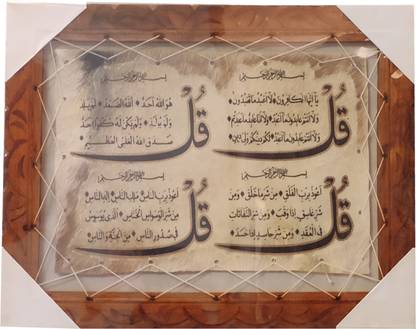 بسم الله الرحمن الرحيم
قُلْ
يَا أَيُّهَا الْكَافِرُونَ * لَا أَعْبُدُ مَا تَعْبُدُونَ *
وَلَا أَنْتُمْ عَابِدُونَ مَا أَعْبُدُ * وَلَا أَنَا عَابِدٌ مَا عَبَدْتُمْ
وَلَا أَنْتُمْ عَابِدُونَ مَا أَعْبُدُ * لَكُمْ دِينُكُمْ وَلِيَ دِينِ
بسم الله الرحمن الرحيم
قُلْ
هُوَ اللَّهُ أَحَدٌ * اللَّهُ الصَّمَدُ * لَمْ يَلِدْ
وَلَمْ يُولَدْ * وَلَمْ يَكُنْ لَهُ كُفُوًا أَحَدٌ
صَدَقَ اللَّهُ الْعَلِيُّ الْعَظِيمُ
بسم الله الرحمن الرحيم
قُلْ
أَعُوذُ بِرَبِّ الْفَلَقِ * مِنْ شَرِّ مَا خَلَقَ * وَمِنْ
شَرِّ غَاسِقٍ إِذَا وَقَبَ * وَمِنْ شَرِّ النَّفَّاثَاتِ
فِي الْعُقَدِ * وَمِنْ شَرِّ حَاسِدٍ إِذَا حَسَدَ
بسم الله الرحمن الرحيم
قُلْ
أَعُوذُ بِرَبِّ النَّاسِ * مَلِكِ النَّاسِ * إِلَهِ النَّاسِ
مِنْ شَرِّ الْوَسْوَاسِ الْخَنَّاسِ * الَّذِي يُوَسْوِسُ
فِي صُدُورِ النَّاسِ * مِنَ الْجِنَّةِ وَالنَّاسِ